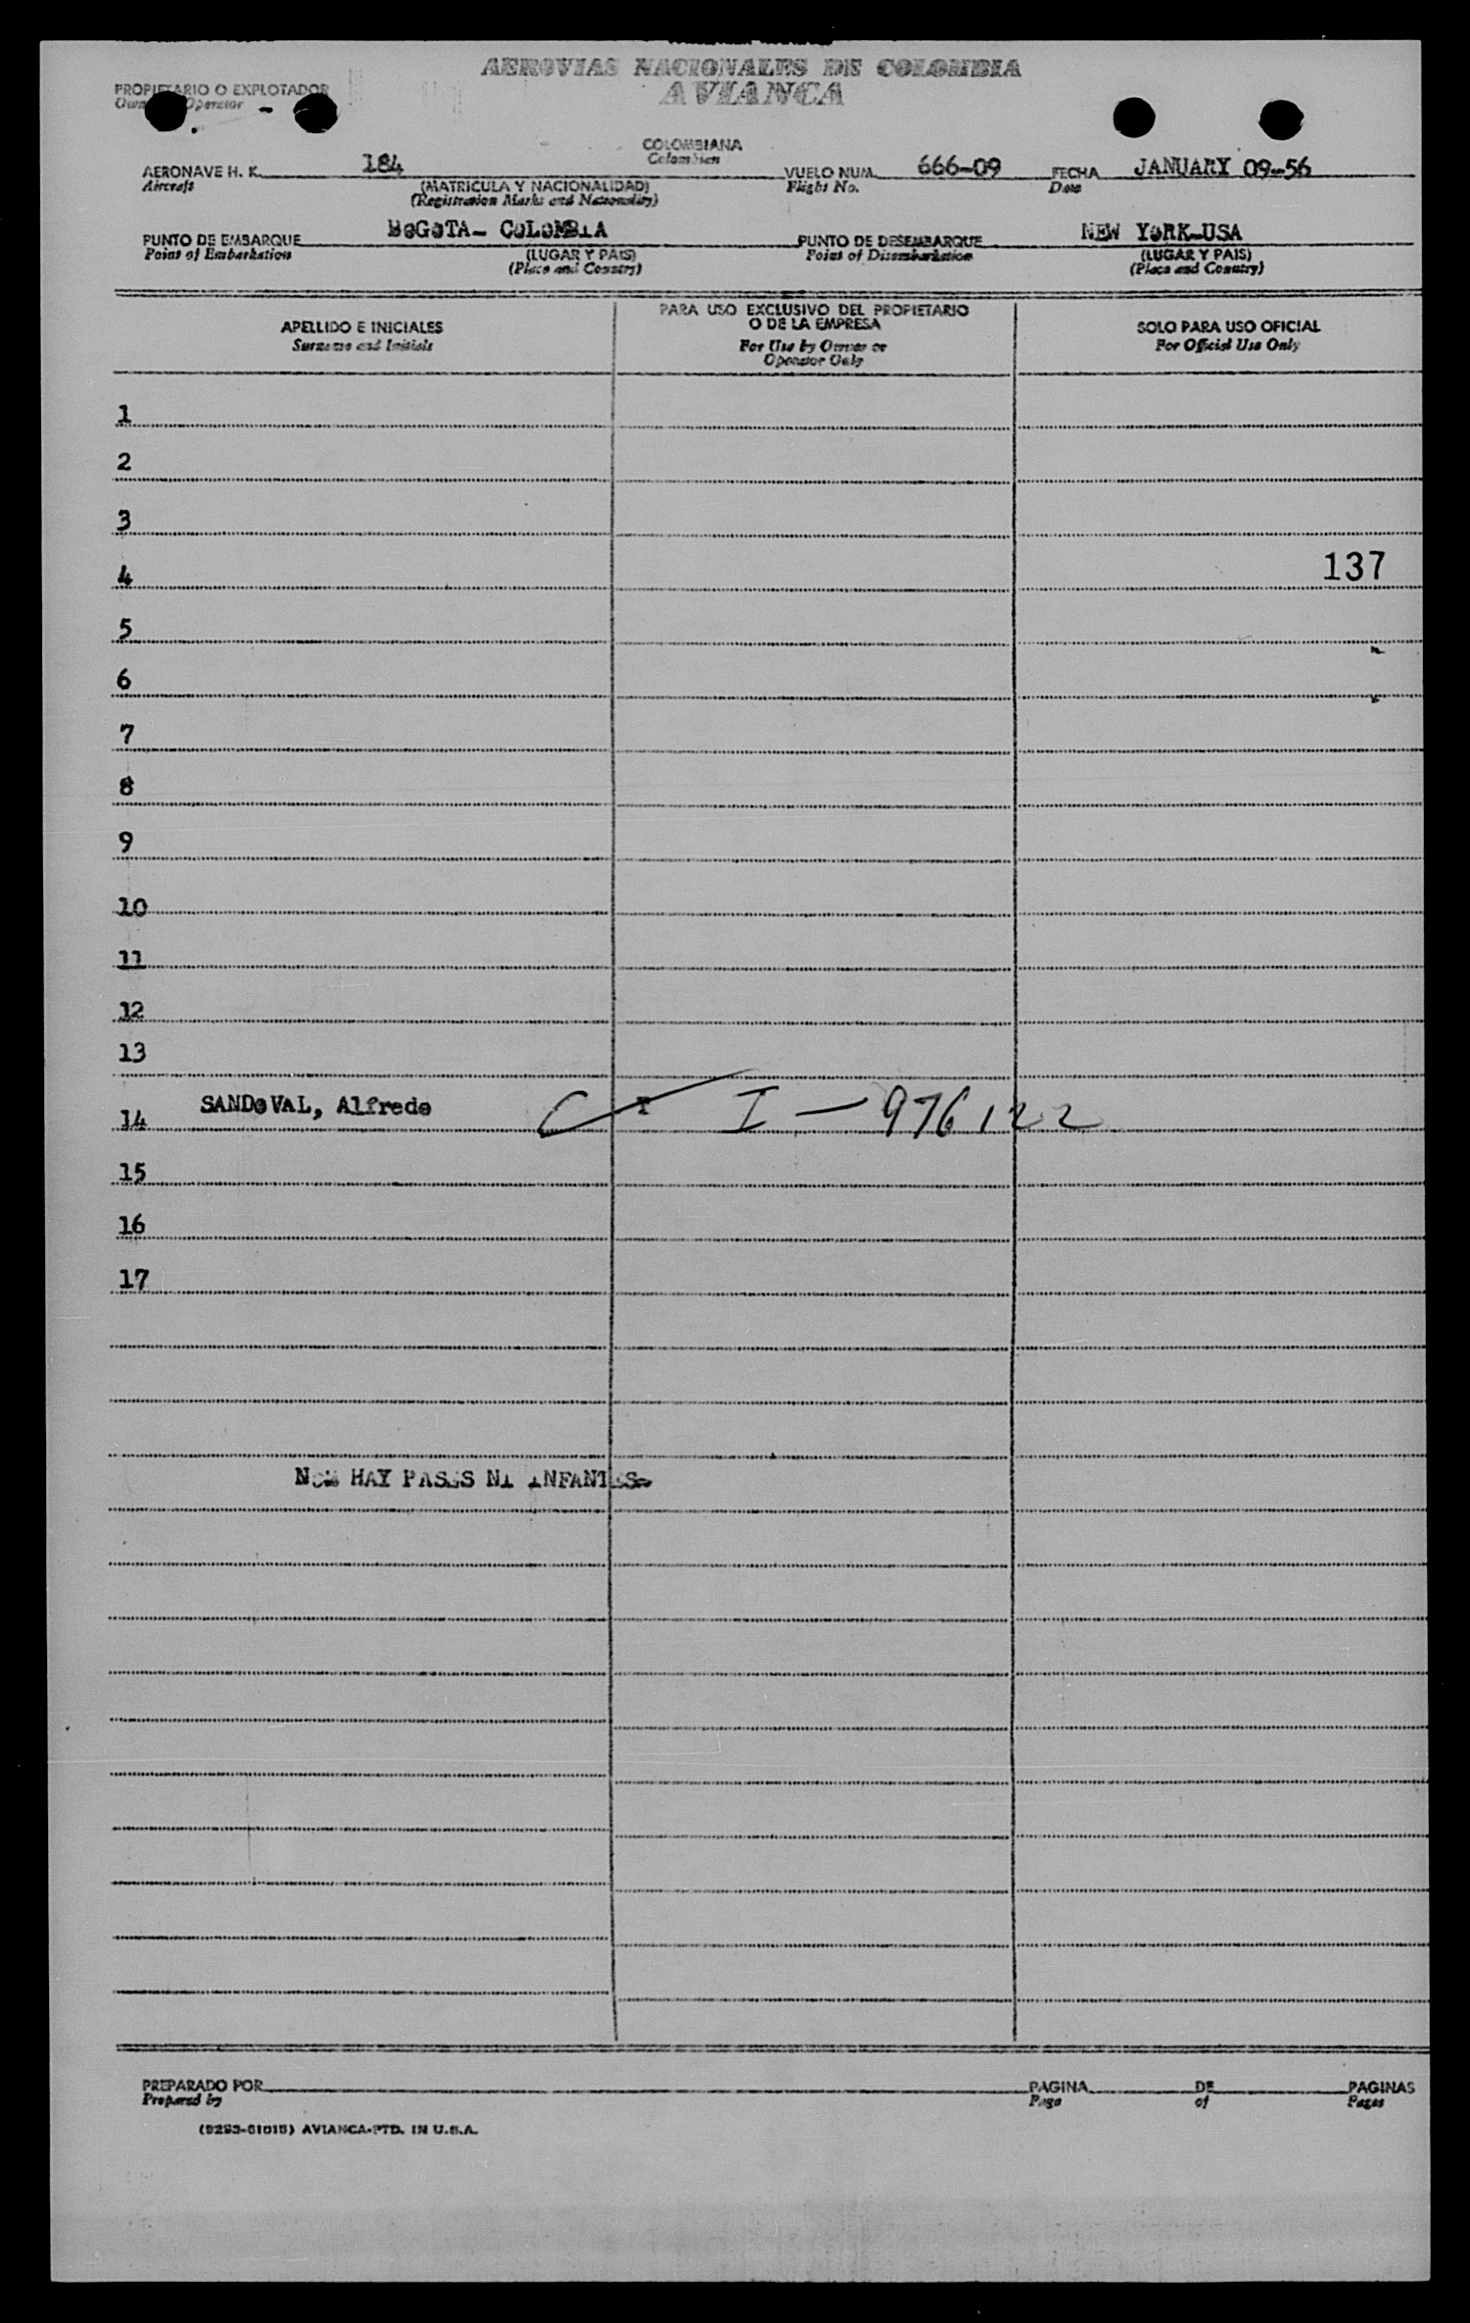 AEROVIAS NACIONALES DE COLOMBIA
AVIANCA
PROPIETARIO O EXPLOTADOR
Operator -
COLOMBIANA
Colombian
AERONAVE H. K. 184 VUELO NUM. 666-09 FECHA JANUARY 09-56
Aircraft (MATRICULA Y NACIONALIDAD) Flight No. Date
(Registration Marks and Nationality)
PUNTO DE EMBARQUE BOGOTA- COLOMBIA PUNTO DE DESEMBARQUE NEW YORK-USA
Point of Embarkation (LUGAR Y PAIS) Point of Disembarkation (LUGAR Y PAIS)
(Place and Country) (Place and Country)
APELLIDO E INICIALES
Surname and Initials
PARA USO EXCLUSIVO DEL PROPIETARIO
O DE LA EMPRESA
For Use by Owner or
Operator Only
SOLO PARA USO OFICIAL
For Official Use Only
1
2
3
4 137
5
6
7
8
9
10
11
12
13
14 SANDOVAL, Alfredo I I - 976122
15
16
17
HAY PASES NI INFANTES-
PREPARADO POR PAGINA DE PAGINAS
Prepared by Page of Pages
(9293-61015) AVIANCA-PTD. IN U.S.A.